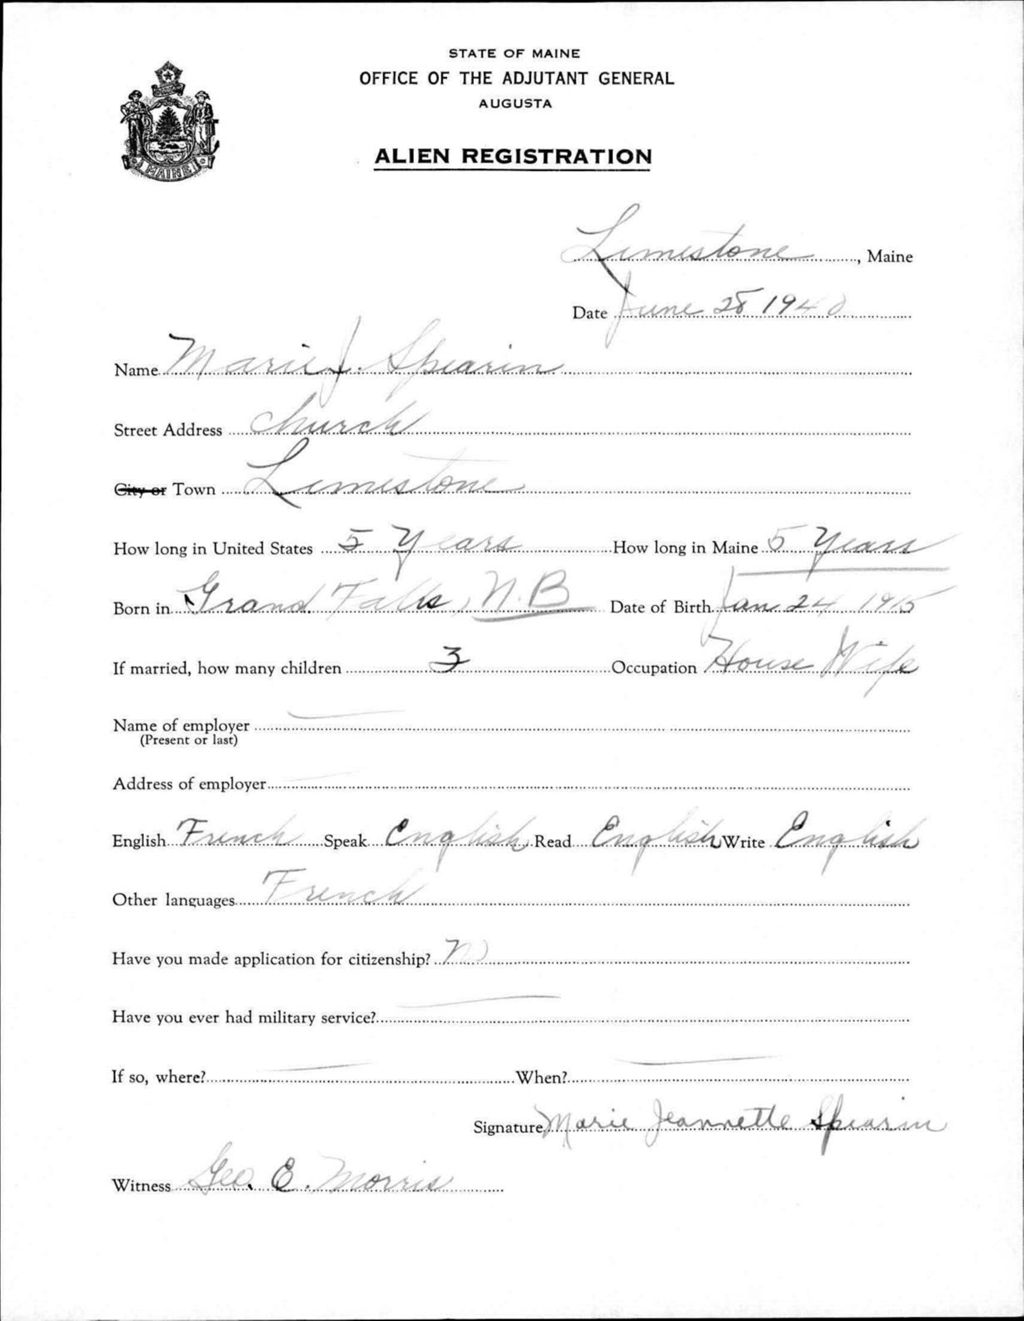 STATE OF MAINE
OFFICE OF THE ADJUTANT GENERAL
AUGUSTA
ALIEN REGISTRATION
MAINE
Limestone, Maine
Date June 28 1940
Name Marie J. Spearin
Street Address Church
City or Town Limestone
How long in United States 5 Years How long in Maine 5 Years
Born in Grand Falls, N.B Date of Birth Jan 24 1915
If married, how many children 3 Occupation House Wife
Name of employer
(Present or last)
Address of employer
English French Speak English Read English Write English
Other languages French
Have you made application for citizenship? No
Have you ever had military service?
If so, where? When?
Signature Marie Jeannette Spearin
Witness Geo. E. Morris